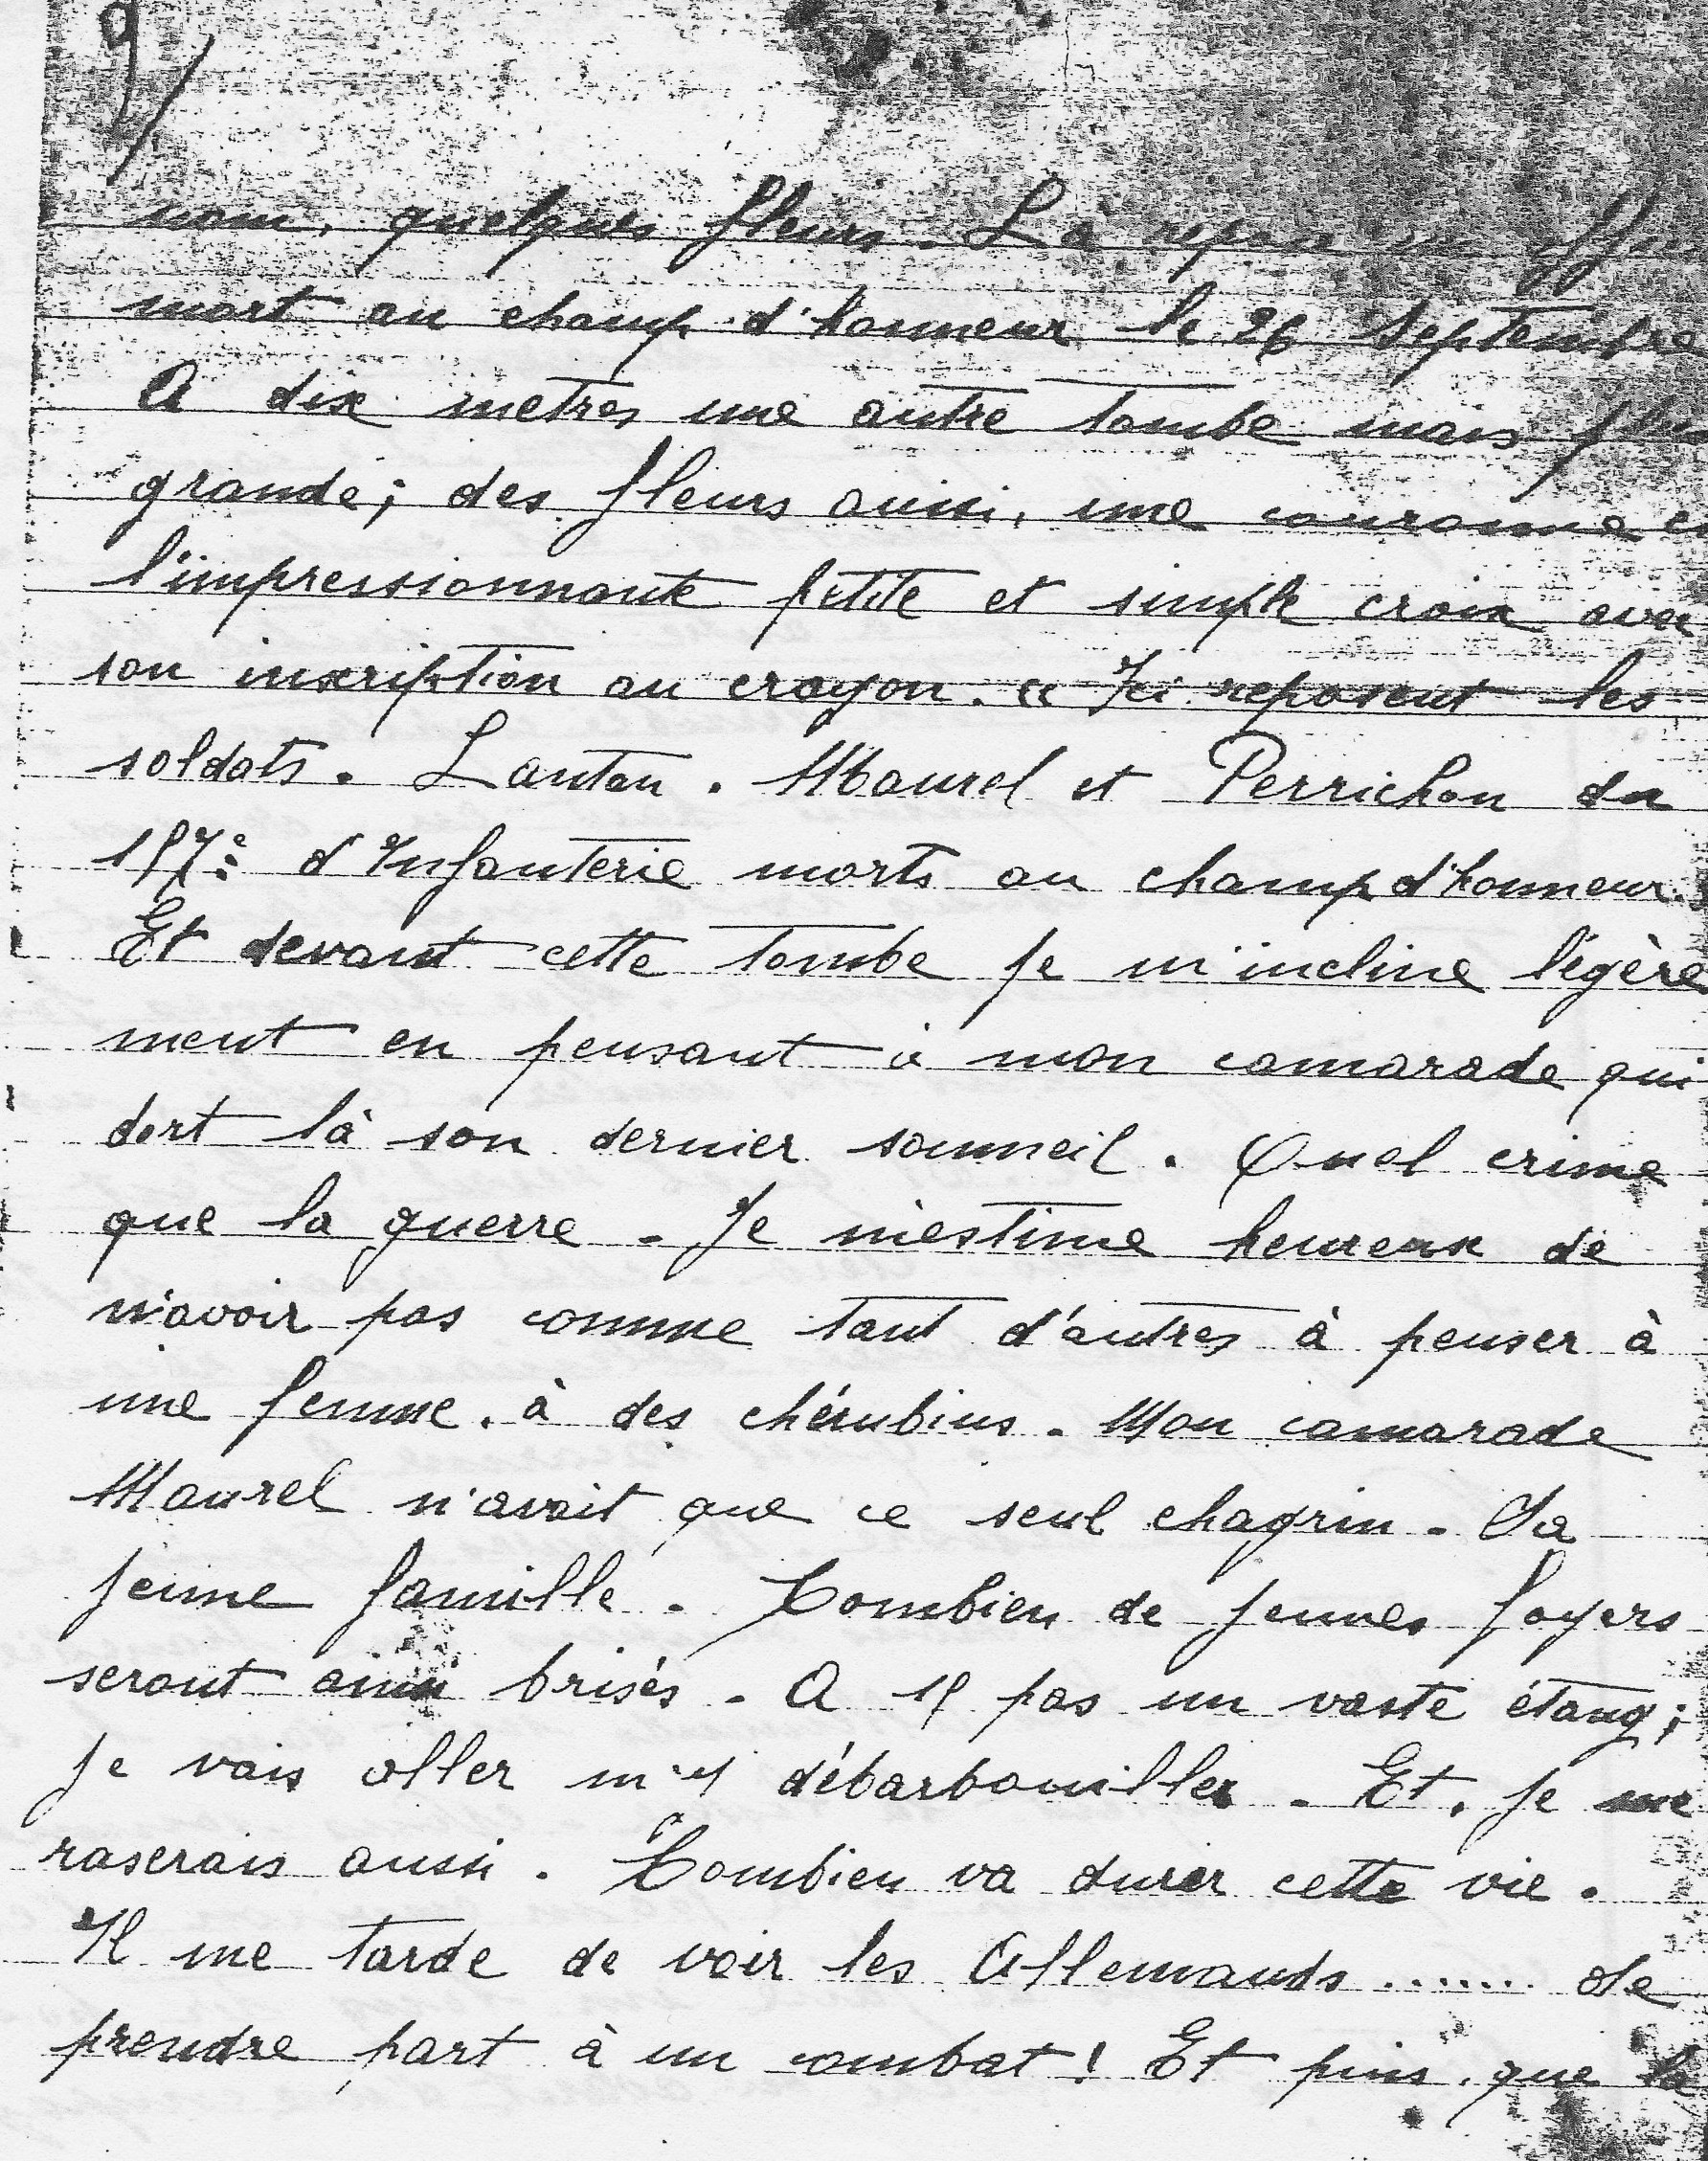 9/
nom, quelques fleurs. Là repose un
mort au champ d'honneur le 26 Septembre
A dix mètres une autre tombe mais plus
grande; des fleurs aussi, une couronne et
l'impressionnante petite et simple croix avec
son inscription au crayon. « Ici reposent les
soldats. Lantou. Maurel et Perrichon du
157e d'Infanterie morts au champ d'honneur.
Et devant cette tombe je m'incline légère
ment en pensant à mon camarade qui
dort là son dernier sommeil. Quel crime
que la guerre. Je m'estime heureux de
n'avoir pas comme tant d'autres à penser à
une femme, à des chérubins. Mon camarade
Maurel n'avait que ce seul chagrin. Sa
jeune famille. Combien de jeunes foyers
seront ainsi brisés. A 15 pas un vaste étang;
je vais aller m'y débarbouiller. Et, je me
raserais aussi. Combien va durer cette vie.
Il me tarde de voir les Allemands ....... de
prendre part à un combat! Et puis, que la